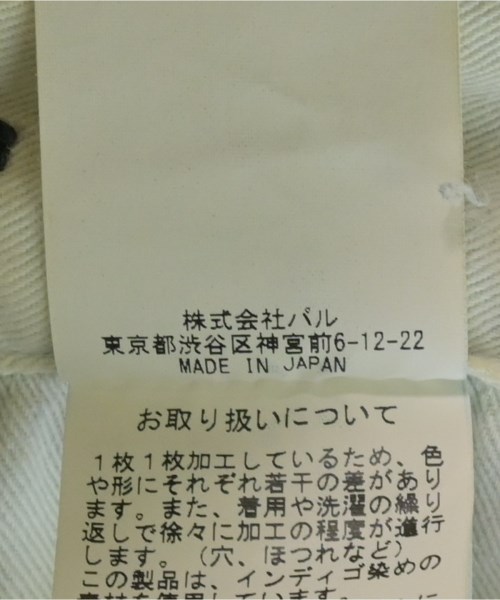 株式会社パル
東京都渋谷区神宮前6-12-22
MADE IN JAPAN
お取り扱いについて
１枚１枚加工しているため、色
や形にそれぞれ若干の差があり
ます。また、着用や洗濯の繰り
返しで徐々に加工の程度が進行
します。（穴、ほつれなど）
この製品は、インディゴ染めの
素材を使用しています。